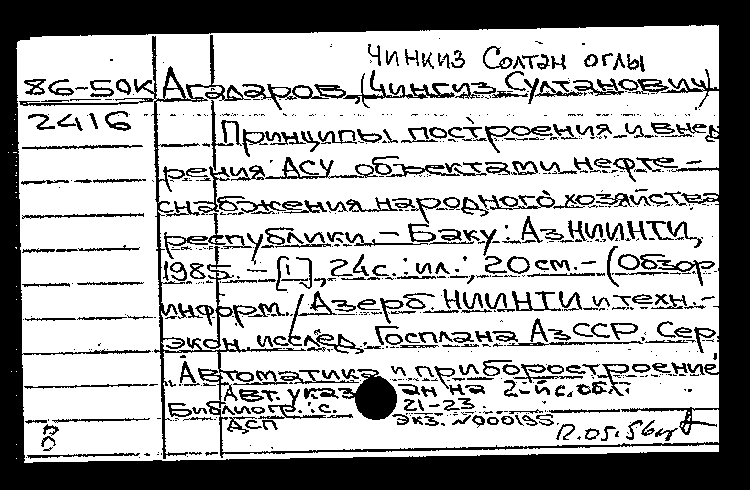 Чинкиз Солтан оглы
86-50К Агаларов, (Чингиз Султанович)
2416 Принципы построения и внед
рения АСУ объектами нефте-
снабжения народного хозяйства
республики. - Баку: АзНИИНТИ,
1985. - [1], 24 с.: ил.; 20 см. - (Обзор.
информ. / Азерб. НИИНТИ и техн.-
экон. исслед. Госплана АзССР. Сер.
"Автоматика и приборостроение
Авт. указ ан на 2-й с. обл.
Библиогр.: с. 21-23
ДСП Экз. №000195